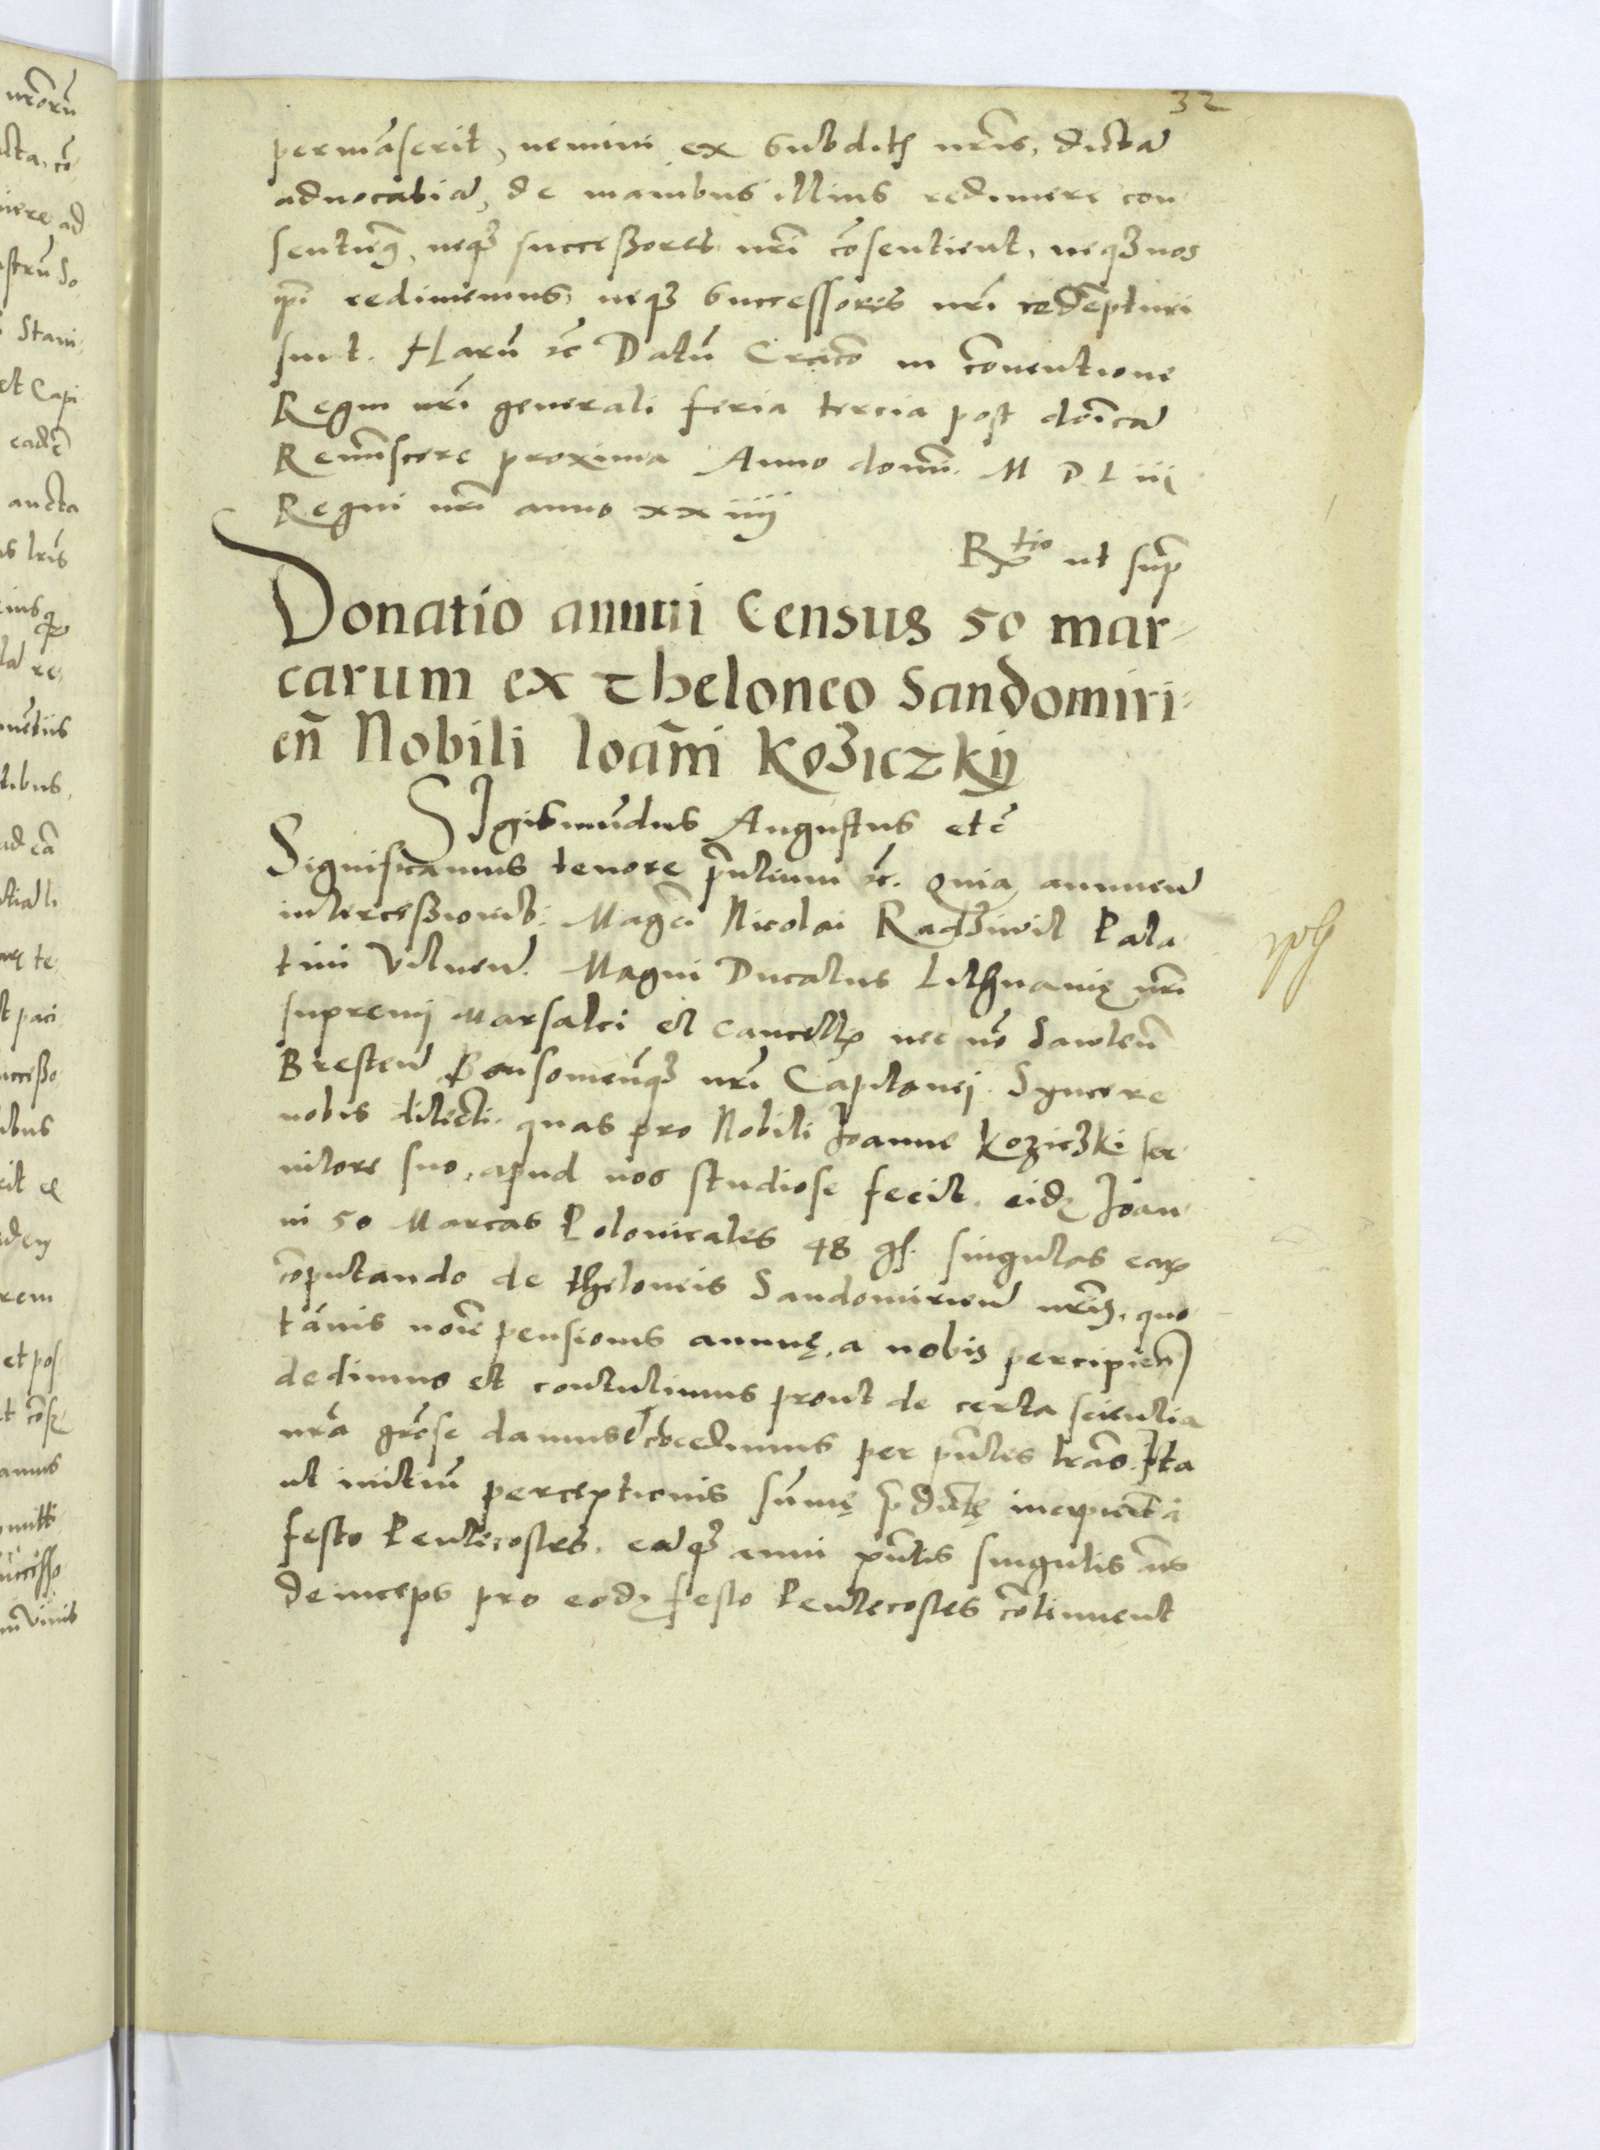 32
permãserit, nemini ex subditis nr̃is, dictã
advocatiã, de manibus illius redimere con
sentiemus, neq3 successores nr̃i cõsentient, neq3 nos
ip̃i redimemus, neq3 successores nr̃i redẽpturi
sunt. Harũ ꝛc̃ Datũ Craco in cõventione
Regni nr̃i generali feria tercia post dnĩcã
Reminĩscere proxima Anno domĩ. M D L iii
Regni nr̃i anno xx iiij
R<sup>tio</sup> ut sup̃
Donatio annui Census 50 mar-
carum ex Theloneo Sandomiri-
en̄ Nobili Ioāni Ko3iczkij
SIgismũdus Augustus etc̃
Significamus tenore p̃ntium ꝛc̃. Quia annuen̄
intercessionib. Magc̃i Nicolai Rad3iwil Pala
tini Vilnen̄. Magni Ducatus Lithuanię nr̃i
supremi Marsalci et Cancellꝝ nec nõ Sawlen̄
Bresten̄ Borisomien̄q3 nr̃i Capitanei. Syncere
nobis dilecti. quas pro Nobili Joanne Kozic3ki ser
vitore suo, apud nos studiose fecit. eidꝫ Joan
ni 50 Marcas Polonicales 48 gs. singulas eaꝝ
cõputando de theloneis Sandomirien̄ nr̃is, quo
tãnis noĩe pensionis annuę, a nobis percipien̄
dedimus et contulimus prout de certa scientia
nr̃a gr̃ose damus et cõcedimus per p̃ntes lr̃as. Ita
ut initiũ perceptionis sum̃ę p̃dictę incipient à
festo Pentecostes. eiusq3 anni p̃ntis singulis ãnis
deinceps pro eodꝫ festo Pentecostes cõtinuent